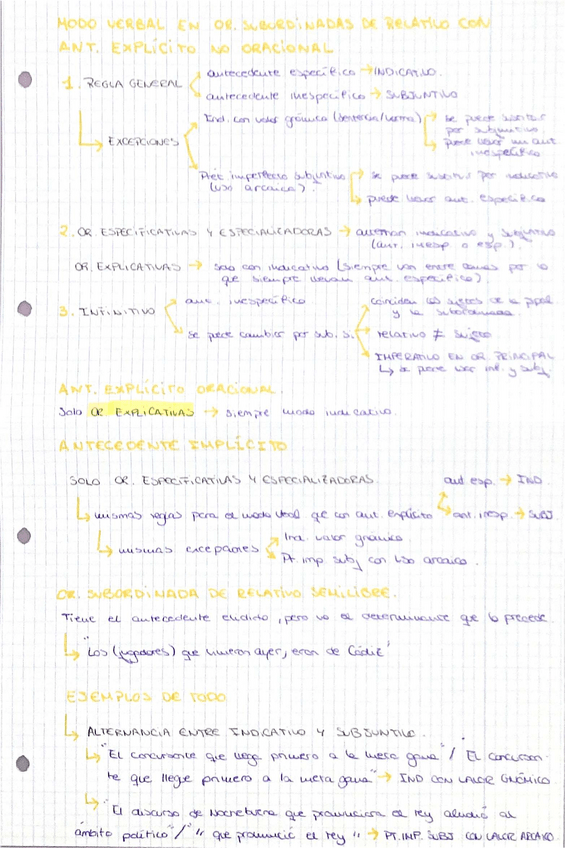 MODO VERBAL EN OR. SUBORDINADAS DE RELATIVO CON
ANT. EXPLÍCITO NO ORACIONAL
1. REGLA GENERAL
antecedente específico → INDICATIVO.
antecedente inespecífico → SUBJUNTIVO
EXCEPCIONES
Ind. con valor gnómico (sentencia/norma)
se puede sustituir
por subjuntivo.
puede llevar un ant.
inespecífico
Pret imperfecto subjuntivo
(uso arcaico).
se puede sustituir por indicativo
puede llevar ant. específico
2. OR. ESPECIFICATIVAS Y ESPECIALIZADORAS → alternan indicativo y subjuntivo
(ant. inesp. o esp.).
OR. EXPLICATIVAS → solo con indicativo (siempre van entre comas por lo
que siempre llevan ant. específico).
3. INFINITIVO
ant. inespecífico
se puede cambiar por sub. si
coinciden los sujetos de la ppal
y la subordinada
relativo ≠ sujeto
IMPERATIVO EN OR. PRINCIPAL
↳ se puede usar inf. y subj
ANT. EXPLÍCITO ORACIONAL.
Solo OR EXPLICATIVAS → siempre modo indicativo.
ANTECEDENTE IMPLÍCITO
SOLO OR. ESPECIFICATIVAS Y ESPECIALIZADORAS.
↳ mismas reglas para el modo verbal que con ant. explícito
ant esp. → IND.
ant. inesp. → SUBJ
↳ mismas excepciones
Ind. valor gnómico
Pt. imp subj con uso arcaico.
OR. SUBORDINADA DE RELATIVO SEMILIBRE.
Tiene el antecedente elidido, pero va el determinante que lo precede.
↳ "Los (jugadores) que vinieron ayer, eran de Cádiz"
EJEMPLOS DE TODO
↳ ALTERNANCIA ENTRE INDICATIVO Y SUBJUNTIVO.
↳ "El concursante que llega primero a la meta gana" / El concursan-
te que llegue primero a la meta gana" → IND CON VALOR GNÓMICO
↳ "El discurso de Nochebuena que pronunciara el rey aludió al
ámbito político" / " que pronunció el rey " → PT. IMP. SUBJ CON VALOR ARCAICO.